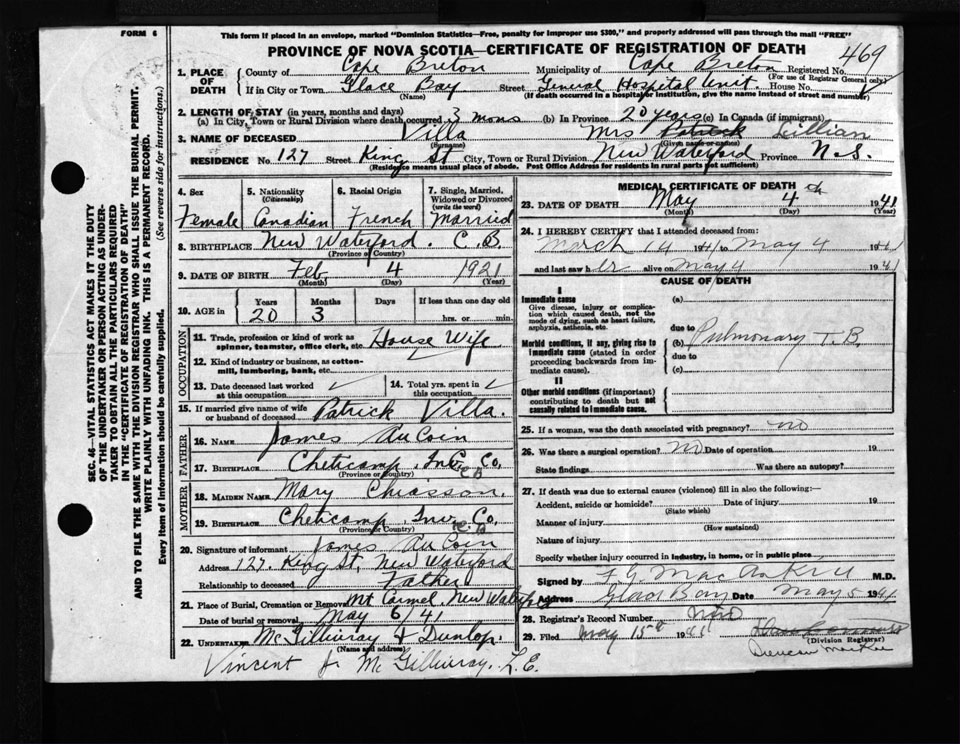 FORM 6
This form if placed in an envelope, marked "Dominion Statistics—Free, penalty for improper use $300," and properly addressed will pass through the mail "FREE"
PROVINCE OF NOVA SCOTIA—CERTIFICATE OF REGISTRATION OF DEATH
469
SEC. 46—VITAL STATISTICS ACT MAKES IT THE DUTY
OF THE UNDERTAKER OR PERSON ACTING AS UNDER-
TAKER TO OBTAIN ALL THE PARTICULARS REQUIRED
IN THE "CERTIFICATE OF REGISTRATION OF DEATH"
AND TO FILE THE SAME WITH THE DIVISION REGISTRAR WHO SHALL ISSUE THE BURIAL PERMIT.
WRITE PLAINLY WITH UNFADING INK. THIS IS A PERMANENT RECORD.
Every item of Information should be carefully supplied. (See reverse side for instructions.)
1. PLACE OF DEATH
County of Cape Breton Municipality of Cape Breton Registered No.
(For use of Registrar General only)
If in City or Town Glace Bay Street General Hospital Unit. House No.
(Name) (If death occurred in a hospital or institution, give the name instead of street and number)
2. LENGTH OF STAY (in years, months and days)
(a) In City, Town or Rural Division where death occurred 3 mons (b) In Province 20 years (c) In Canada (if immigrant)
3. NAME OF DECEASED Villa Mrs Patrick Lillian
(Surname) (Given name or names)
RESIDENCE No. 127 Street King St City, Town or Rural Division New Waterford Province N.S.
(Residence means usual place of abode. Post Office Address for residents in rural parts not sufficient)
4. Sex Female
5. Nationality (Citizenship) Canadian
6. Racial Origin French
7. Single, Married, Widowed or Divorced (write the word) Married
8. BIRTHPLACE New Waterford. C.B.
(Province or Country)
9. DATE OF BIRTH Feb 4 1921
(Month) (Day) (Year)
10. AGE in Years 20 Months 3 Days If less than one day hrs. or min.
OCCUPATION
11. Trade, profession or kind of work as spinner, teamster, office clerk, etc. House Wife
12. Kind of industry or business, as cotton-mill, lumbering, bank, etc.
13. Date deceased last worked at this occupation ✓
14. Total yrs. spent in this occupation ✓
15. If married give name of wife or husband of deceased Patrick Villa.
FATHER
16. NAME James AuCoin
17. BIRTHPLACE Cheticamp Inv. Co. C.B
(Province or Country)
MOTHER
18. MAIDEN NAME Mary Chiasson.
19. BIRTHPLACE Cheticamp Inv Co.
(Province or Country)
20. Signature of informant James AuCoin
Address 127. King St. New Waterford
Relationship to deceased Father
21. Place of Burial, Cremation or Removal Mt Carmel, New Waterford
Date of burial or removal May 6/41
22. UNDERTAKER McGillivray & Dunlop.
(Name and address)
Vincent J. McGillivray. L.E.
MEDICAL CERTIFICATE OF DEATH
23. DATE OF DEATH May 4th 1941
(Month) (Day) (Year)
24. I HEREBY CERTIFY that I attended deceased from:
March 14 1941 to May 4 1941
and last saw her alive on May 4 1941
CAUSE OF DEATH
I
Immediate cause
Give disease, injury or complication which caused death, not the mode of dying, such as heart failure, asphyxia, asthenia, etc.
(a)
due to
Morbid conditions, if any, giving rise to immediate cause (stated in order proceeding backwards from immediate cause).
(b) Pulmonary T.B.
due to
(c)
II
Other morbid conditions (if important) contributing to death but not causally related to immediate cause.
25. If a woman, was the death associated with pregnancy? no
26. Was there a surgical operation? No Date of operation 19
State findings Was there an autopsy?
27. If death was due to external causes (violence) fill in also the following:—
Accident, suicide or homicide? Date of injury 19
(State which)
Manner of injury
(How sustained)
Nature of injury
Specify whether injury occurred in industry, in home, or in public place
Signed by M.D.
Address Glace Bay Date May 5 1941
28. Registrar's Record Number
29. Filed May 15th 19
(Division Registrar)